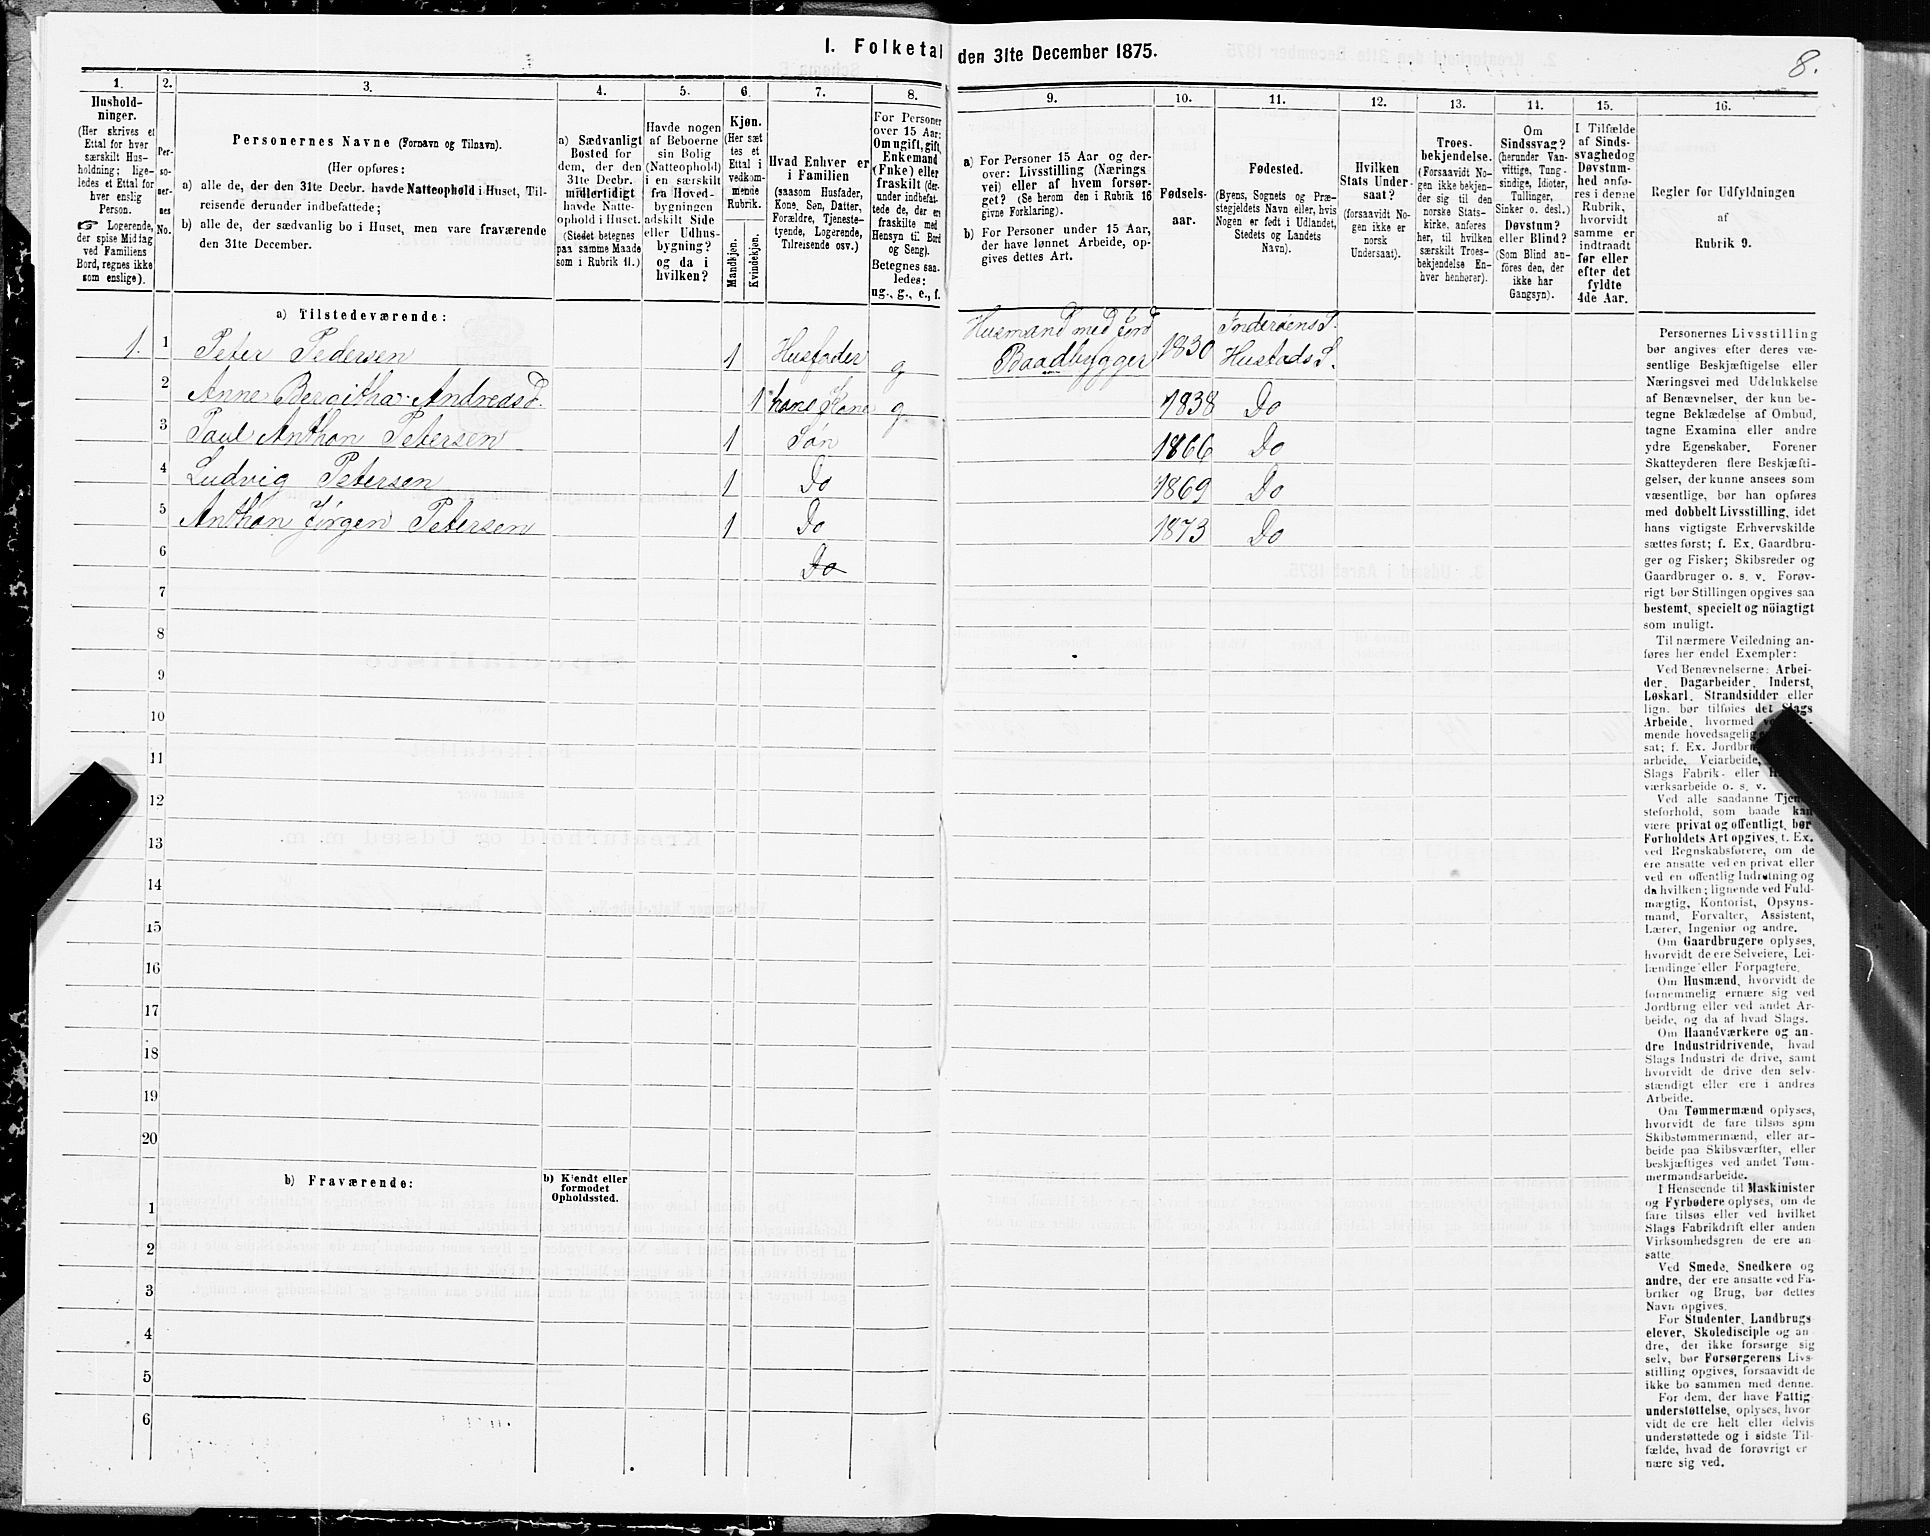 I. Folketal den 31te December 1875.
8.
1.
Hushold-
ninger.
(Her skrives et
Ettal for hver
særskilt Hus-
holdning; lige-
ledes et Ettal for
hver enslig
Person.
☞ Logerende,
der spise Middag
ved Familiens
Bord, regnes ikke
som enslige).
2.
Per-
so-
ner-
nes
No.
3.
Personernes Navne (Fornavn og Tilnavn).
(Her opføres:
a) alle de, der den 31te Decbr. havde Natteophold i Huset, Til-
reisende derunder indbefattede;
b) alle de, der sædvanlig bo i Huset, men vare fraværende
den 31te December.
4.
a) Sædvanligt
Bosted for
dem, der den
31te Decbr.
midlertidigt
havde Natte-
ophold i Huset.
(Stedet betegnes
paa samme Maade
som i Rubrik 11.)
5.
Havde nogen
af Beboerne
sin Bolig
(Natteophold)
i en særskilt
fra Hoved-
bygningen
adskilt Side
eller Udhus-
bygning?
og da i
hvilken?
6.
Kjøn.
(Her sæt
tes et
Ettal i
vedkom-
mende
Rubrik.
Mandkjøn.
Kvindekjøn.
7.
Hvad Enhver er
i Familien
(saasom Husfader,
Kone, Søn, Datter,
Forældre, Tjeneste-
tyende, Logerende,
Tilreisende osv.)
8.
For Personer
over 15 Aar:
Om ugift, gift,
Enkemand
(Enke) eller
fraskilt (der-
under indbefat-
tede de, der er
fraskilte med
Hensyn til Bord
og Seng).
Betegnes saa-
ledes:
ug., g., e., f.
9.
a) For Personer 15 Aar og der-
over: Livsstilling (Nærings
vei) eller af hvem forsør-
get? (Se herom den i Rubrik 16
givne Forklaring).
b) For Personer under 15 Aar,
der have lønnet Arbeide, op-
gives dettes Art.
10.
Fødsels-
aar.
11.
Fødested.
(Byens, Sognets og Præ-
stegjeldets Navn eller, hvis
Nogen er født i Udlandet,
Stedets og Landets
Navn).
12.
Hvilken
Stats Under-
saat?
(forsaavidt No-
gen ikke er
norsk
Undersaat).
13.
Troes-
bekjendelse.
(Forsaavidt No-
gen ikke bekjen-
der sig til den
norske Stats-
kirke, anføres
her, til hvilken
særskilt Troes-
bekjendelse En-
hver henhører).
14.
Om
Sindssvag?
(herunder Van-
vittige, Tung-
sindige, Idioter,
Tullinger,
Sinker o. desl.)
Døvstum?
eller Blind?
(Som Blind an-
føres den, der
ikke har
Gangsyn).
15.
I Tilfælde
af Sinds-
svaghed og
Døvstum-
hed anfø-
res i denne
Rubrik,
hvorvidt
samme er
indtraadt
før eller
efter det
fyldte
4de Aar.
16.
Regler for Udfyldningen
af
Rubrik 9.
a) Tilstedeværende:
1. 1 Peter Pedersen 1 Husfader g Husmand med Jord Baadbygger 1830 Inderøens P. Hustads S.
2 Anne Bergitha Andreasd. 1 hans Kone g 1838 Do
3 Paul Anthon Petersen 1 Søn 1866 Do
4 Ludvig Petersen 1 Do 1869 Do
5 Anthon Jørgen Petersen 1 Do 1873 Do
6 Do
7
8
9
10
11
12
13
14
15
16
17
18
19
20
b) Fraværende:
b) Kjendt eller
formodet
Opholdssted.
1
2
3
4
5
6
Personernes Livsstilling
bør angives efter deres væ-
sentlige Beskjæftigelse eller
Næringsvei med Udelukkelse
af Benævnelser, der kun be-
tegne Beklædelse af Ombud,
tagne Examina eller andre
ydre Egenskaber. Forener
Skatteyderen flere Beskjæfti-
gelser, der kunne ansees som
væsentlige, bør han opføres
med dobbelt Livsstilling, idet
hans vigtigste Erhvervskilde
sættes først; f. Ex. Gaardbru-
ger og Fisker; Skibsreder og
Gaardbruger o. s. v. Forøv-
rigt bør Stillingen opgives saa
bestemt, specielt og nöiagtigt
som muligt.
Til nærmere Veiledning an-
føres her endel Exempler:
Ved Benævnelserne: Arbei-
der, Dagarbeider, Inderst,
Løskarl, Strandsidder eller
lign. bør tilføies det Slags
Arbeide, hvormed
mende hovedsagelig
sat; f. Ex. Jordbru
arbeide, Veiarbeide,
Slags Fabrik- eller
værksarbeide o. s. v.
Ved alle saadanne Tje
steforhold, som baade kan
være privat og offentligt, bør
Forholdets Art opgives, t. Ex.
ved Regnskabsførere, om de
ere ansatte ved en privat eller
ved en offentlig Indretning og
da hvilken; lignende ved Fuld-
mægtig, Kontorist, Opsyns-
mand, Forvalter, Assistent,
Lærer, Ingeniør og andre.
Om Gaardbrugere oplyses,
hvorvidt de ere Selveiere, Lei-
lændinge eller Forpagtere.
Om Husmænd, hvorvidt de
fornemmelig ernære sig ved
Jordbrug eller ved andet Ar-
beide, og da af hvad Slags.
Om Haandværkere og an-
dre Industridrivende, hvad
Slags Industri de drive, samt
hvorvidt de drive den selv-
stændigt eller ere i andres
Arbeide.
Om Tømmermænd oplyses,
hvorvidt de fare tilsøs som
Skibstømmermænd, eller ar-
beide paa Skibsværfter, eller
beskjæftiges ved andet Tøm-
mermandsarbeide.
I Henseende til Maskinister
og Fyrbødere oplyses, om de
fare tilsøs eller ved hvilket
Slags Fabrikdrift eller anden
Virksomhedsgren de ere an-
satte
Ved Smede, Snedkere og
andre, der ere ansatte ved Fa-
briker og Brug, bør dettes
Navn opgives.
For Studenter, Landbrugs
elever, Skoledisciple og an-
dre, der ikke forsørge sig
selv, bør Forsørgerens Livs-
stilling opgives, forsaavidt de
ikke bo sammen med denne.
For dem, der have Fattig
understøttelse, oplyses, hvor
vidt de ere helt eller delvis
understøttede og i sidste Til-
fælde, hvad de forøvrigt er
nære sig ved.